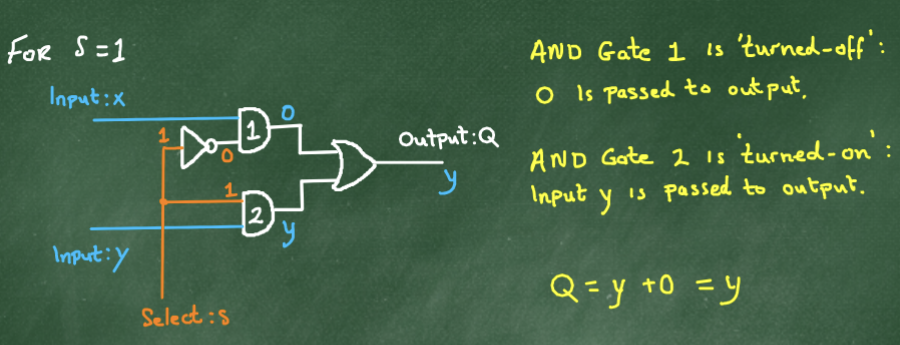 FOR S=1
Input:x
1
0
1
0
Output:Q
y
1
2
y
Input:y
Select:s
AND Gate 1 is 'turned-off':
0 Is passed to output.
AND Gate 2 is 'turned-on':
Input y is passed to output.
Q = y +0 = y